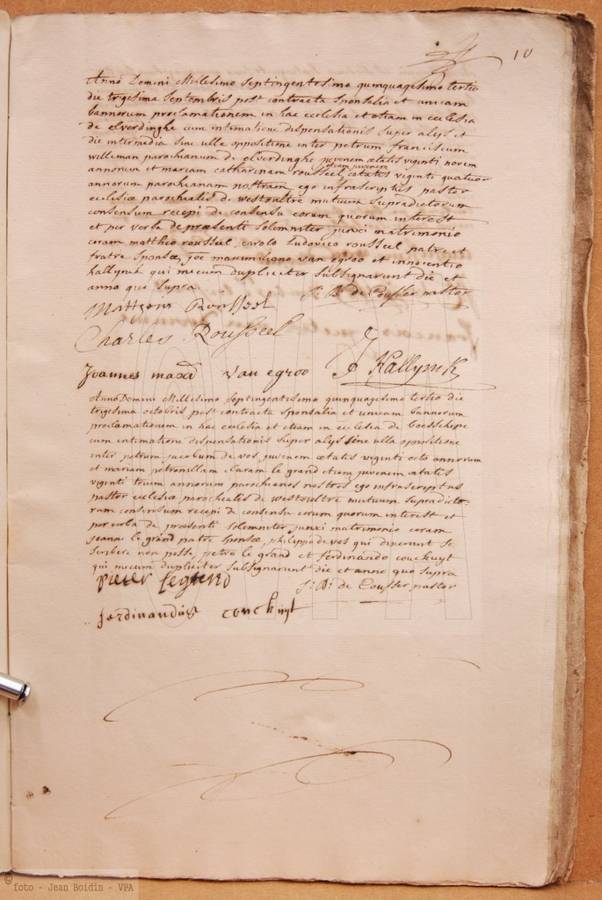 10
Anno Domini Millesimo Septingentesimo quinquagesimo tertio
die trigesima Septembris post contracta sponsalia et unicam
bannorum proclamationem in hac ecclesia et etiam in ecclesia
de elverdinghe cum intimatione dispensationis super alijs et
die intermedia sine ulla oppositione inter petrum franciscum
willeman parochianum de elverdinghe juvenem ætatis viginti novem
annorum et mariam catharinam roussel etiam juvenem ætatis viginti quatuor
annorum parochianam nostram, ego infrascriptus pastor
ecclesiæ parochialis de westoultre mutuum supradictorum
consensum recepi de consensu eorum quorum interest
et per verba de præsenti solemniter junxi matrimonio
coram mattheo roussel, carolo ludovico roussel patre et
fratre sponsæ, joe maximiliano van egroo et innocentio
kallynck qui mecum dupliciter subsignarunt die et
anno quo supra
de Cousser pastor
Mattheus Roussel
Charles Rousseel
Joannes maxi van egroo J Kallynck
Anno Domini Millesimo Septingentesimo quinquagesimo tertio die
trigesima octobris post contracta sponsalia et unicam bannorum
proclamationem in hac ecclesia et etiam in ecclesia de boeschepe
cum intimatione dispensationis super alijs sine ulla oppositione
inter petrum jacobum de vos juvenem ætatis viginti octo annorum
et mariam petronillam claram le grand etiam juvenem ætatis
viginti trium annorum parochianos nostros ego infrascriptus
pastor ecclesiæ parochialis de westoultre mutuum supradicto-
rum consensum recepi de consensu eorum quorum interest et
per verba de præsenti solemniter junxi matrimonio coram
joanne le grand patre sponsæ, philippo de vos qui dixerunt se
scribere non posse, petro le grand et ferdinando couckuyt
qui mecum dupliciter subsignarunt die et anno quo supra
de Cousser pastor
pieter legrand
ferdinandus couckuyt
© foto - Jean Boidin - VPA